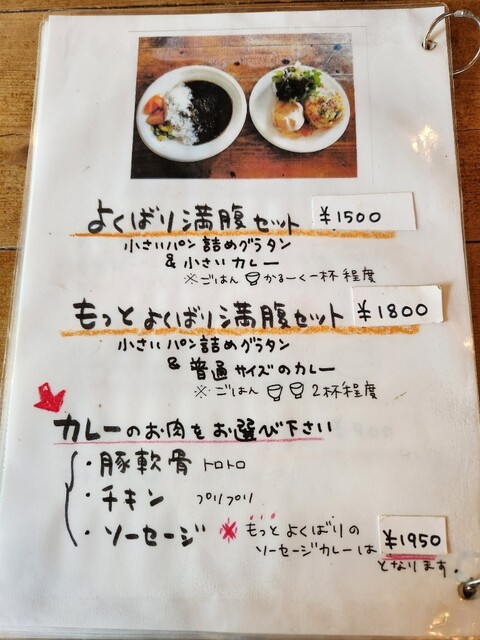 よくばり満腹セット ¥1500
小さいパン詰めグラタン
& 小さいカレー
※ごはん かるーく一杯程度
もっとよくばり満腹セット ¥1800
小さいパン詰めグラタン
& 普通サイズのカレー
※ごはん 2杯程度
カレーのお肉をお選び下さい
・豚軟骨 トロトロ
・チキン プリプリ
・ソーセージ ※もっとよくばりの
ソーセージカレーは ¥1950
となります。